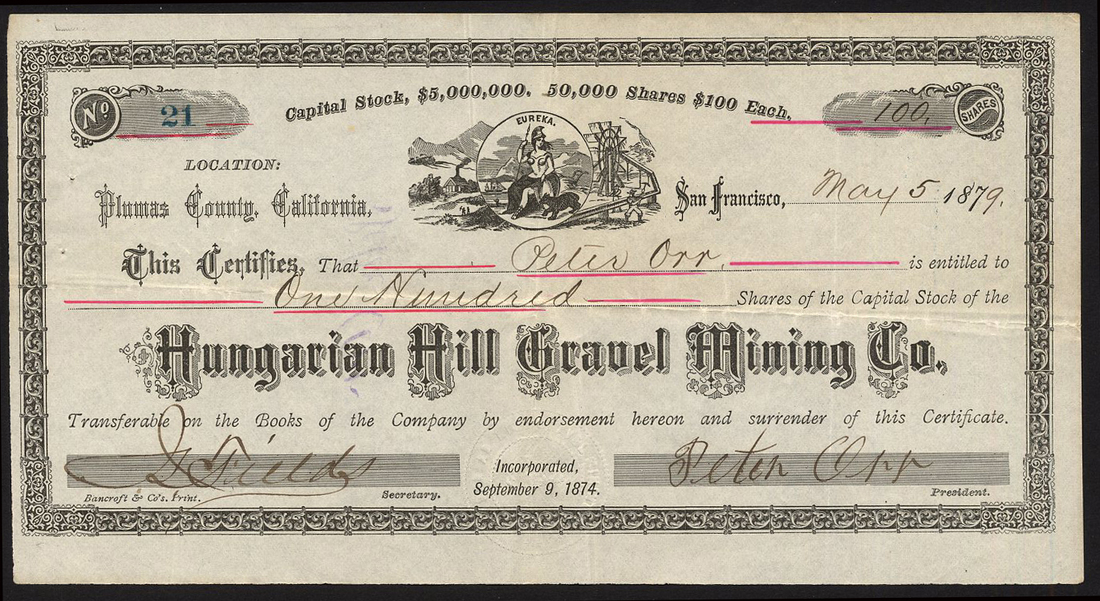 Capital Stock, $5,000,000. 50,000 Shares $100 Each.
No 21
100, SHARES
EUREKA.
LOCATION:
Plumas County, California,
San Francisco, May 5 1879.
This Certifies, That Peter Orr, is entitled to
One Hundred Shares of the Capital Stock of the
Hungarian Hill Gravel Mining Co.
Transferable on the Books of the Company by endorsement hereon and surrender of this Certificate.
Fields Peter Orr
Incorporated,
September 9, 1874.
Bancroft & Co's. Print. Secretary. President.